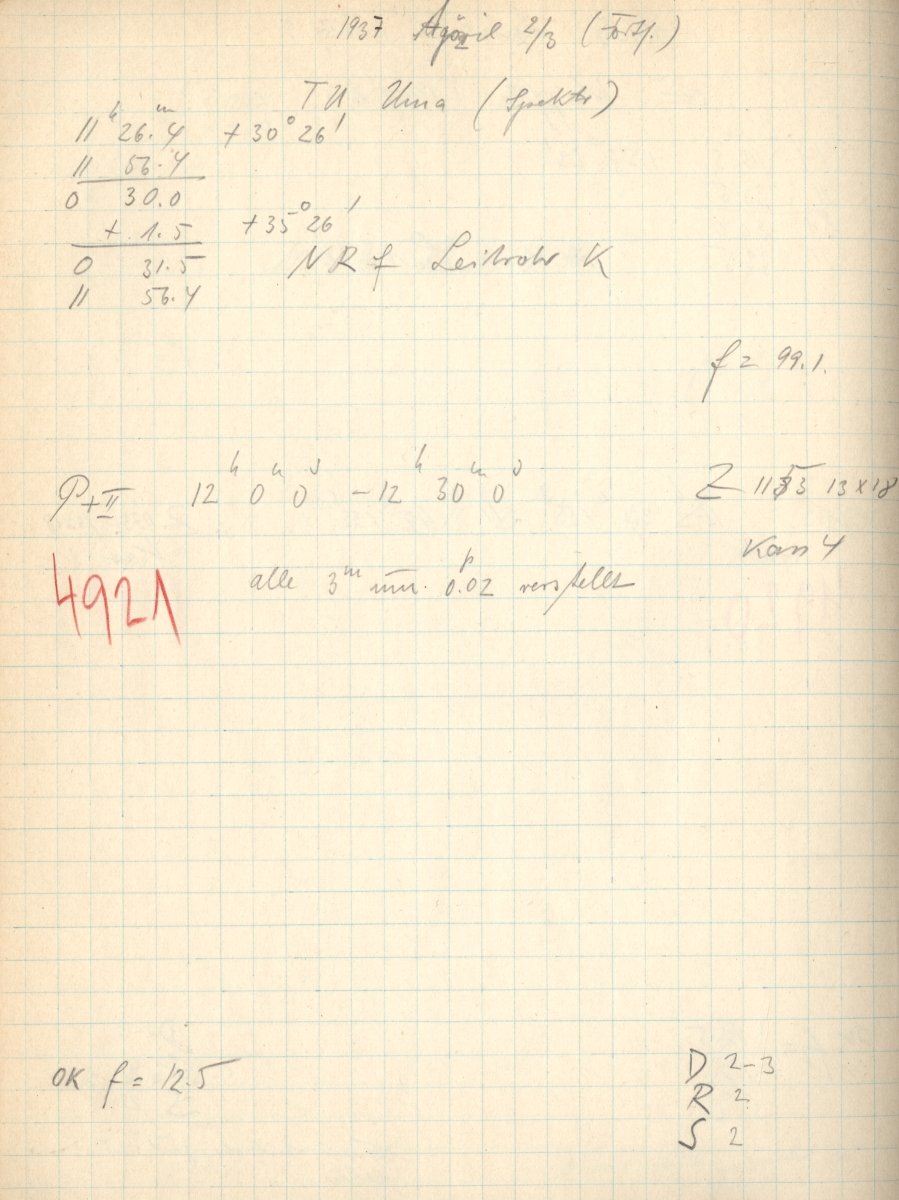 1937 April 2/3 (Forts.)
TU Uma (Spektr)
11ʰ 26.4ᵐ + 30° 26'
11 56.4
0 30.0
+ 1.5 + 35° 26'
0 31.5 NRf Leitrohr K
11 56.4
f = 99.1.
P+II 12ʰ 0ᵐ 0ˢ - 12ʰ 30ᵐ 0ˢ Z 1135 13 x 18
Kass 4
4921 alle 3ᵐ um 0.02 verstellt
OK f = 12.5
D 2-3
R 2
S 2